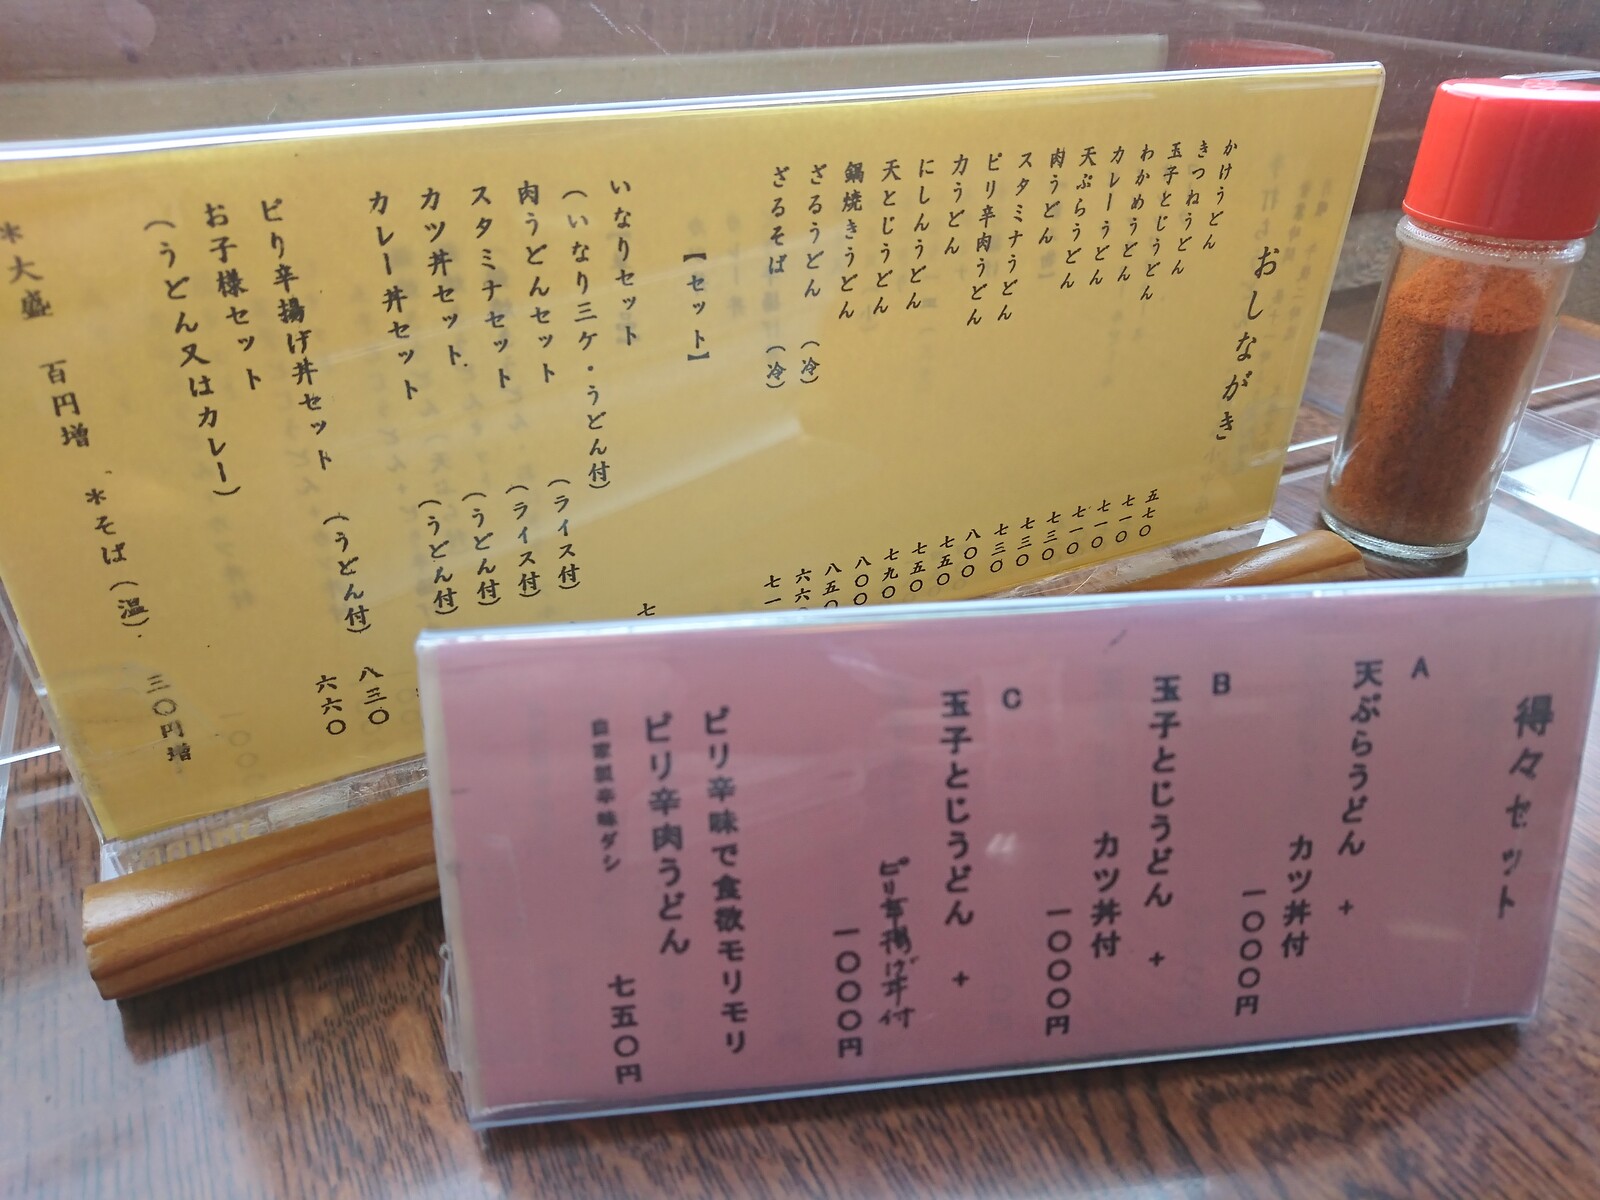 おしながき
かけうどん 五七〇
きつねうどん 七一〇
玉子とじうどん 七一〇
わかめうどん 七一〇
カレーうどん 七三〇
天ぷらうどん 七三〇
肉うどん 七三〇
スタミナうどん 八〇〇
ピリ辛肉うどん 七五〇
力うどん 七五〇
にしんうどん 七九〇
天とじうどん 八〇〇
鍋焼きうどん 八五〇
ざるうどん (冷) 六六〇
ざるそば (冷) 七一
【セット】
いなりセット 七
(いなり三ケ・うどん付)
肉うどんセット (ライス付)
スタミナセット (ライス付)
カツ丼セット (うどん付)
カレー丼セット (うどん付)
ピリ辛揚げ丼セット (うどん付) 八三〇
お子様セット 六六〇
(うどん又はカレー)
*大盛 百円増 *そば(温) 三〇円増
得々セット
A
天ぷらうどん +
カツ丼付
一〇〇〇円
B
玉子とじうどん +
カツ丼付
一〇〇〇円
C
玉子とじうどん +
ピリ辛揚げ丼付
一〇〇〇円
ピリ辛味で食欲モリモリ
ピリ辛肉うどん 七五〇円
自家製辛味ダシ